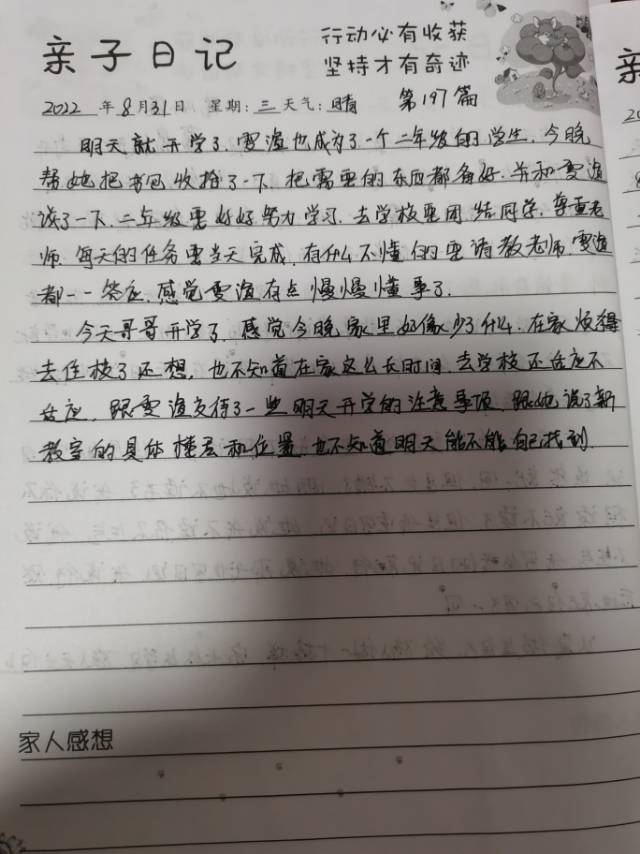 亲子日记
行动必有收获
坚持才有奇迹
2022年8月31日 星期:三 天气:晴 第197篇
明天就开学了,雯渲也成为了一个二年级的学生,今晚
帮她把书包收拾了一下,把需要的东西都备好,并和雯渲
谈了一下,二年级要好好努力学习,去学校要团结同学,尊重老
师,每天的任务要当天完成,有什么不懂的要请教老师,雯渲
都一一答应,感觉雯渲有点慢慢懂事了.
今天哥哥开学了,感觉今晚家里好像少了什么,在家烦得
去住校了还想,也不知道在家这么长时间,去学校还适应不
适应,跟雯渲交待了一些明天开学的注意事项,跟她说了新
教室的具体楼层和位置,也不知道明天能不能自己找到.
家人感想
亲
20